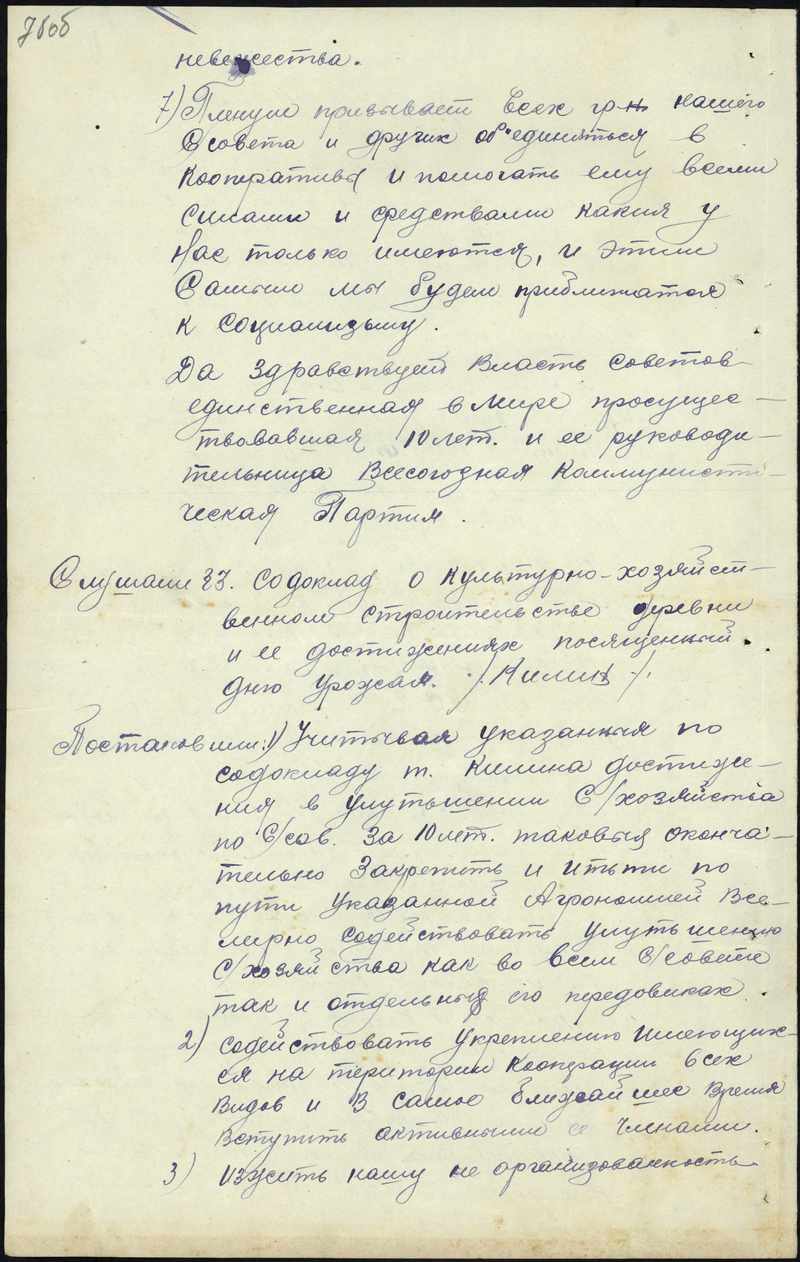 невежества.
7) Пленум призывает всех гр-н нашего
С/совета и других об"единяться в
Кооперативы и помогать ему всеми
силами и средствами какия у
Нас только имеются, и этим
Самым мы будем приближатся
к социализьму.
Да здравствует Власть советов
единственная в мире просущес-
твовавшая 10 лет. и ее руководи-
тельница Всесоюзная Коммунисти-
ческая Партия.
Слушали §3. Содоклад о культурно-хозяйст-
венном строительстве деревни
и ее достижениях посященный
дню урожая. /Килин/.
Постановили: 1) Учитывая указанныя по
содокладу т. Килина достиже-
ния в улутьшении С/хозяйства
по С/сов. за 10 лет. таковыя оконча-
тельно Закрепить и итьти по
пути указанной Агрономией Все-
мирно содействовать улутьшению
С/хозяйства как во всем С/совете
так и отдельных его передовиках.
2) Содействовать укреплению имеющих-
ся на територии кооперации всех
видов и в самое ближайшее время
вступить активными ее членами.
3) Изжить нашу не организованность